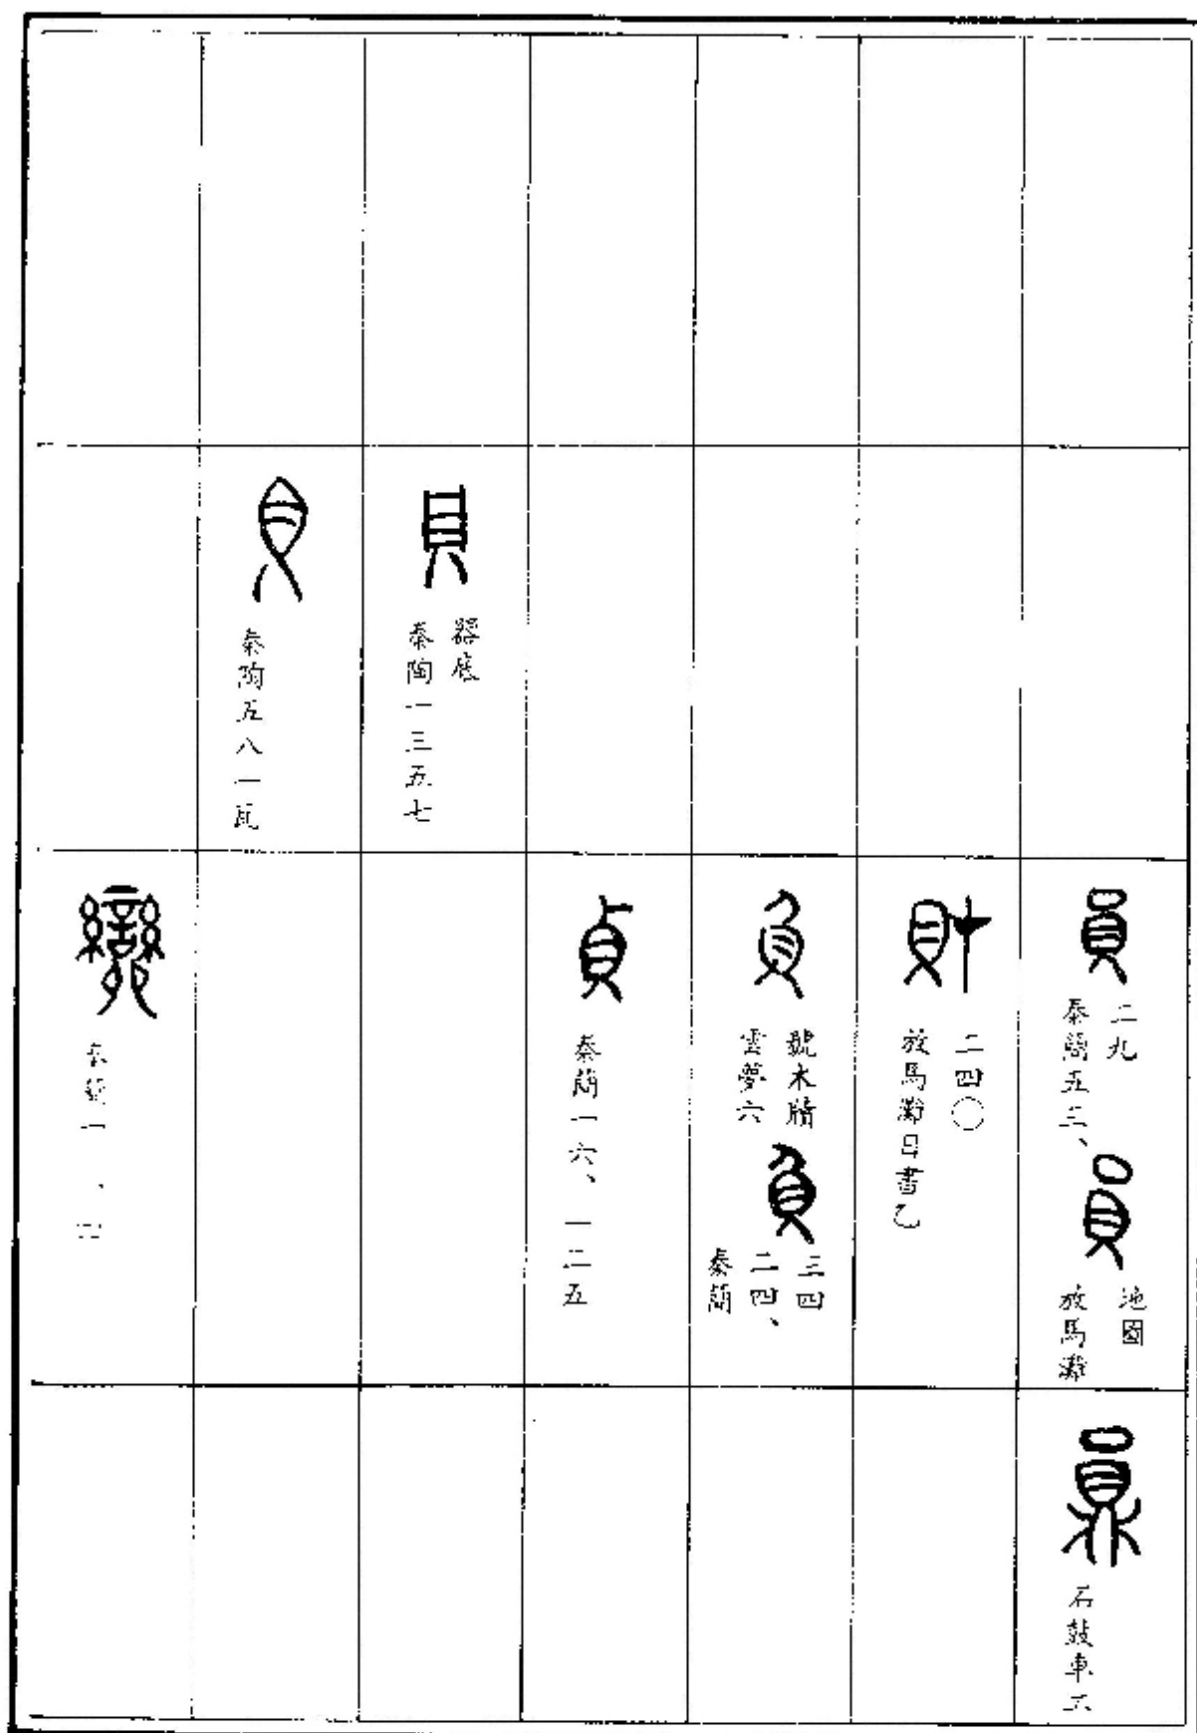 員
秦簡五三、
二九
員
放馬灘
地圖
員
石鼓車工
財
放馬灘日書乙
二四〇
負
雲夢六
號木牘
負
秦簡
二四、
三四
貞
秦簡一六、一二五
貝
秦陶一三五七
器底
貝
秦陶五八一瓦